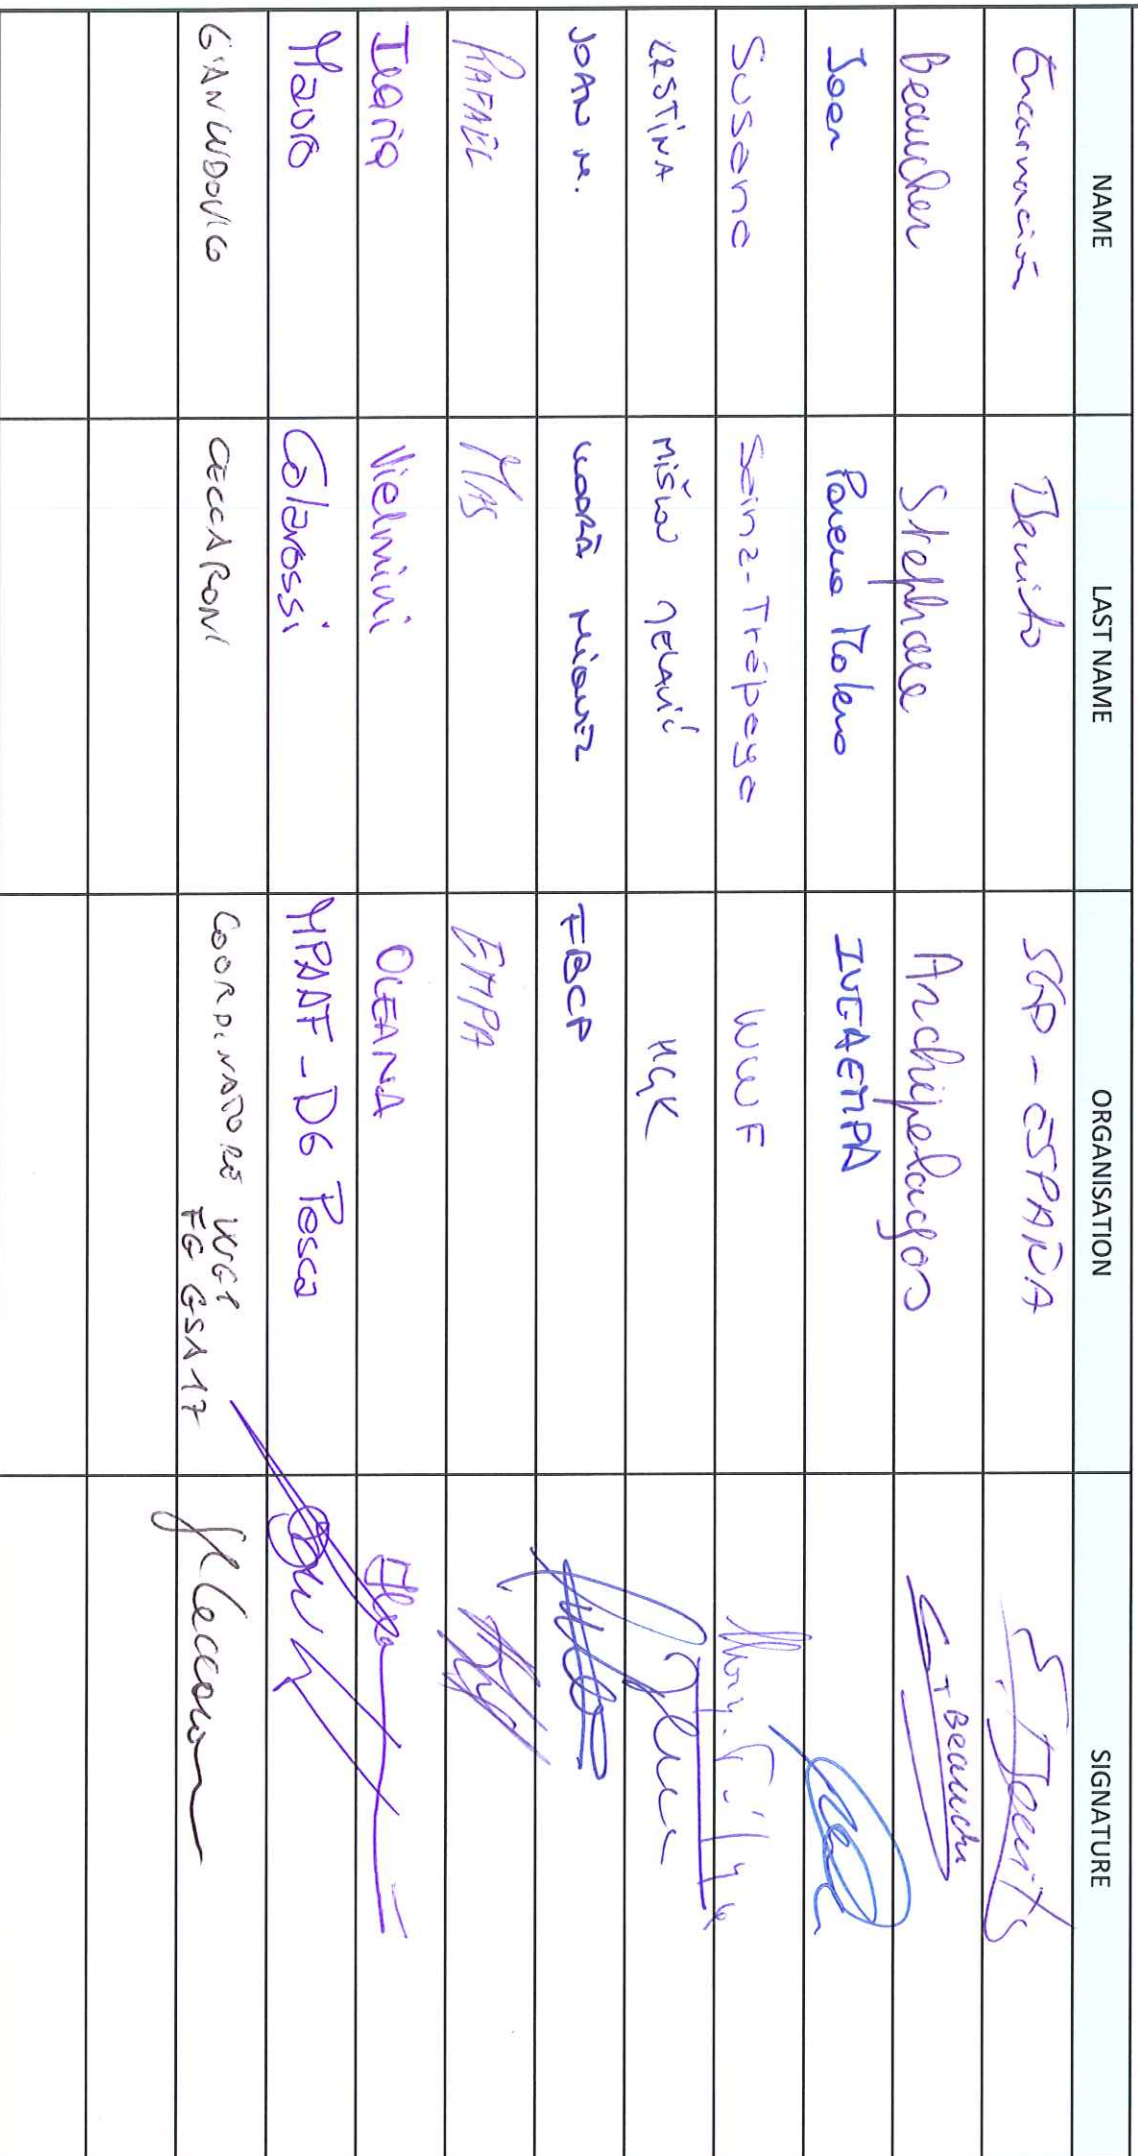 NAME LAST NAME ORGANISATION SIGNATURE
Encarnación Benito SGP - ESPAÑA E. Benito
Beaucher Stephane Archipelagos ST Beaucher
Joan Moreno IVEAEMPA
Susana Sainz-Trápaga WWF
KRSTINA MIŠLOV JELAVIĆ HGK
JOAN M. MIQUEZ FBCP
RAFAEL MAS EMPA
Ilaria Vielmini OCEANA
Mauro Colarossi MPAAF - DG Pesca
GIANLUDOVICO CECCARONI COORDINATORE WG1
FG GSA 17